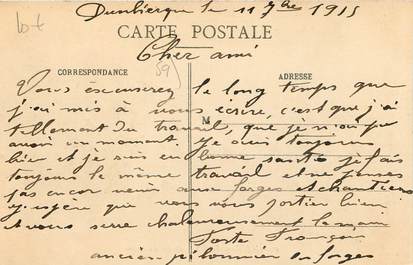 Dunkerque le 11 7bre 1915
CARTE POSTALE
Cher ami
CORRESPONDANCE
ADRESSE
59
lot
Vous éscuserez le long temps que
j'ai mis à vous écrire, c'est que j'ai
M
tellement du travail, que je n'ai pu
avoir un moment je suis toujours
bien et je suis en bonne santé je fais
toujours le même travail et ne penses
pas encor venir aux forges et chantiers
j'espère que vous vous portier bien
et vous serre chaleureusement la main
François
ancien pilonnier des forges